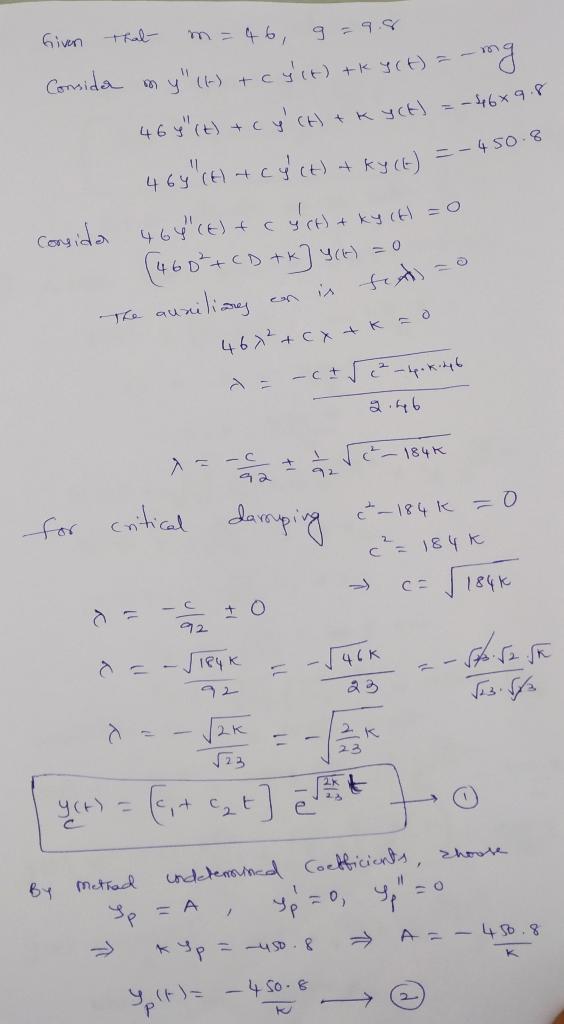 Given that m = 46, g = 9.8
Consider m y''(t) + c y'(t) + k y(t) = -mg
46 y''(t) + c y'(t) + k y(t) = -46×9.8
46 y''(t) + c y'(t) + k y(t) = -450.8
Consider 46 y''(t) + c y'(t) + k y(t) = 0
(46 D² + CD + K] y(t) = 0
The auxiliary eqn is f(λ) = 0
46λ² + cλ + k = 0
λ = -c ± √(c² - 4·k·46) / 2·46
λ = -c/92 ± 1/92 √(c² - 184k)
for critical damping c² - 184k = 0
c² = 184k
⇒ c = √184k
λ = -c/92 ± 0
λ = -√184k / 92 = -√46k / 23 = -√23·√2·√k / √23·√23
λ = -√2k / √23 = -√(2/23 k)
y_c(t) = [c₁ + c₂t] e^{-√(2k/23) t} → ①
By method undetermined coefficients, choose
y_p = A, y_p' = 0, y_p'' = 0
⇒ k y_p = -450.8 ⇒ A = -450.8/k
y_p(t) = -450.8/k → ②